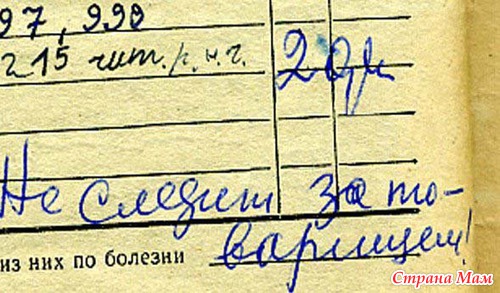 97, 990
215 чит. р. н. г. 2
Не следит за то-
варищем!
из них по болезни
Страна Мам